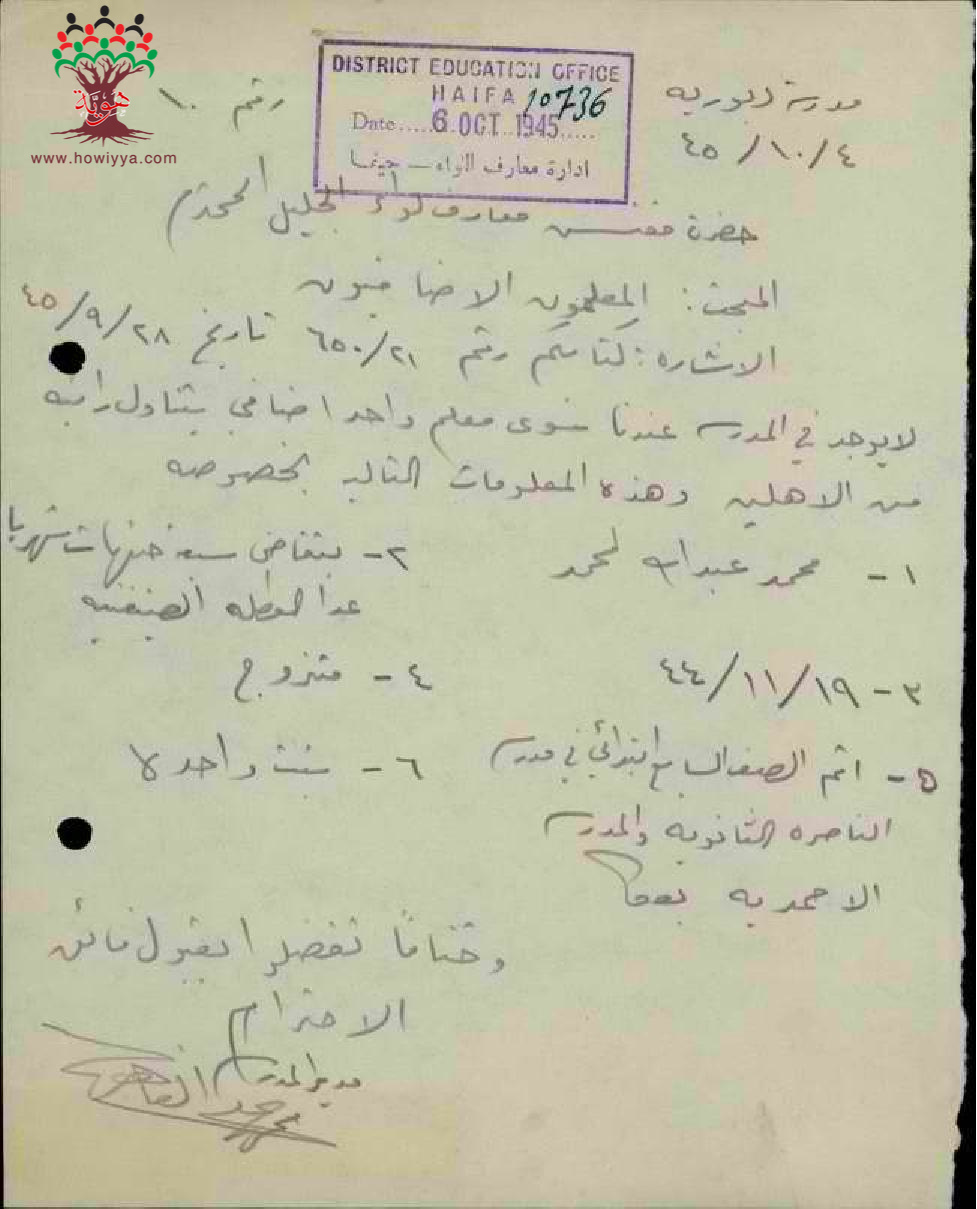 هوية
www.howiyya.com
DISTRICT EDUCATION OFFICE
HAIFA 10736
Date.....6 OCT 1945.....
ادارة معارف اللواء — حيفا
مدرسة دبوريه
رقم ١٠
٤/١٠/٤٥
حضرة مفتش معارف لواء الجليل المحترم
المبحث: المعلمون الاضافيون
الاشاره: كتابكم رقم ٦٥٠/٢١ تاريخ ٢٨/٩/٤٥
لا يوجد في المدرسه عندنا سوى معلم واحد اضافي يتناول راتبه
من الاهلين وهذه المعلومات التاليه بخصوصه
١- محمد عبدالله محمد
٢- يتقاضى سبعة جنيهات شهريا
عدا العطله الصيفيه
٣- ١٩/١١/٤٤
٤- متزوج
٥- اتم الصف السابع ابتدائي في مدرسة
الناصره الثانويه والمدرسه
الاحمديه بعكا
٦- بنت واحده
وختاماً تفضلوا بقبول فائق
الاحترام
مدير المدرسه
محمد